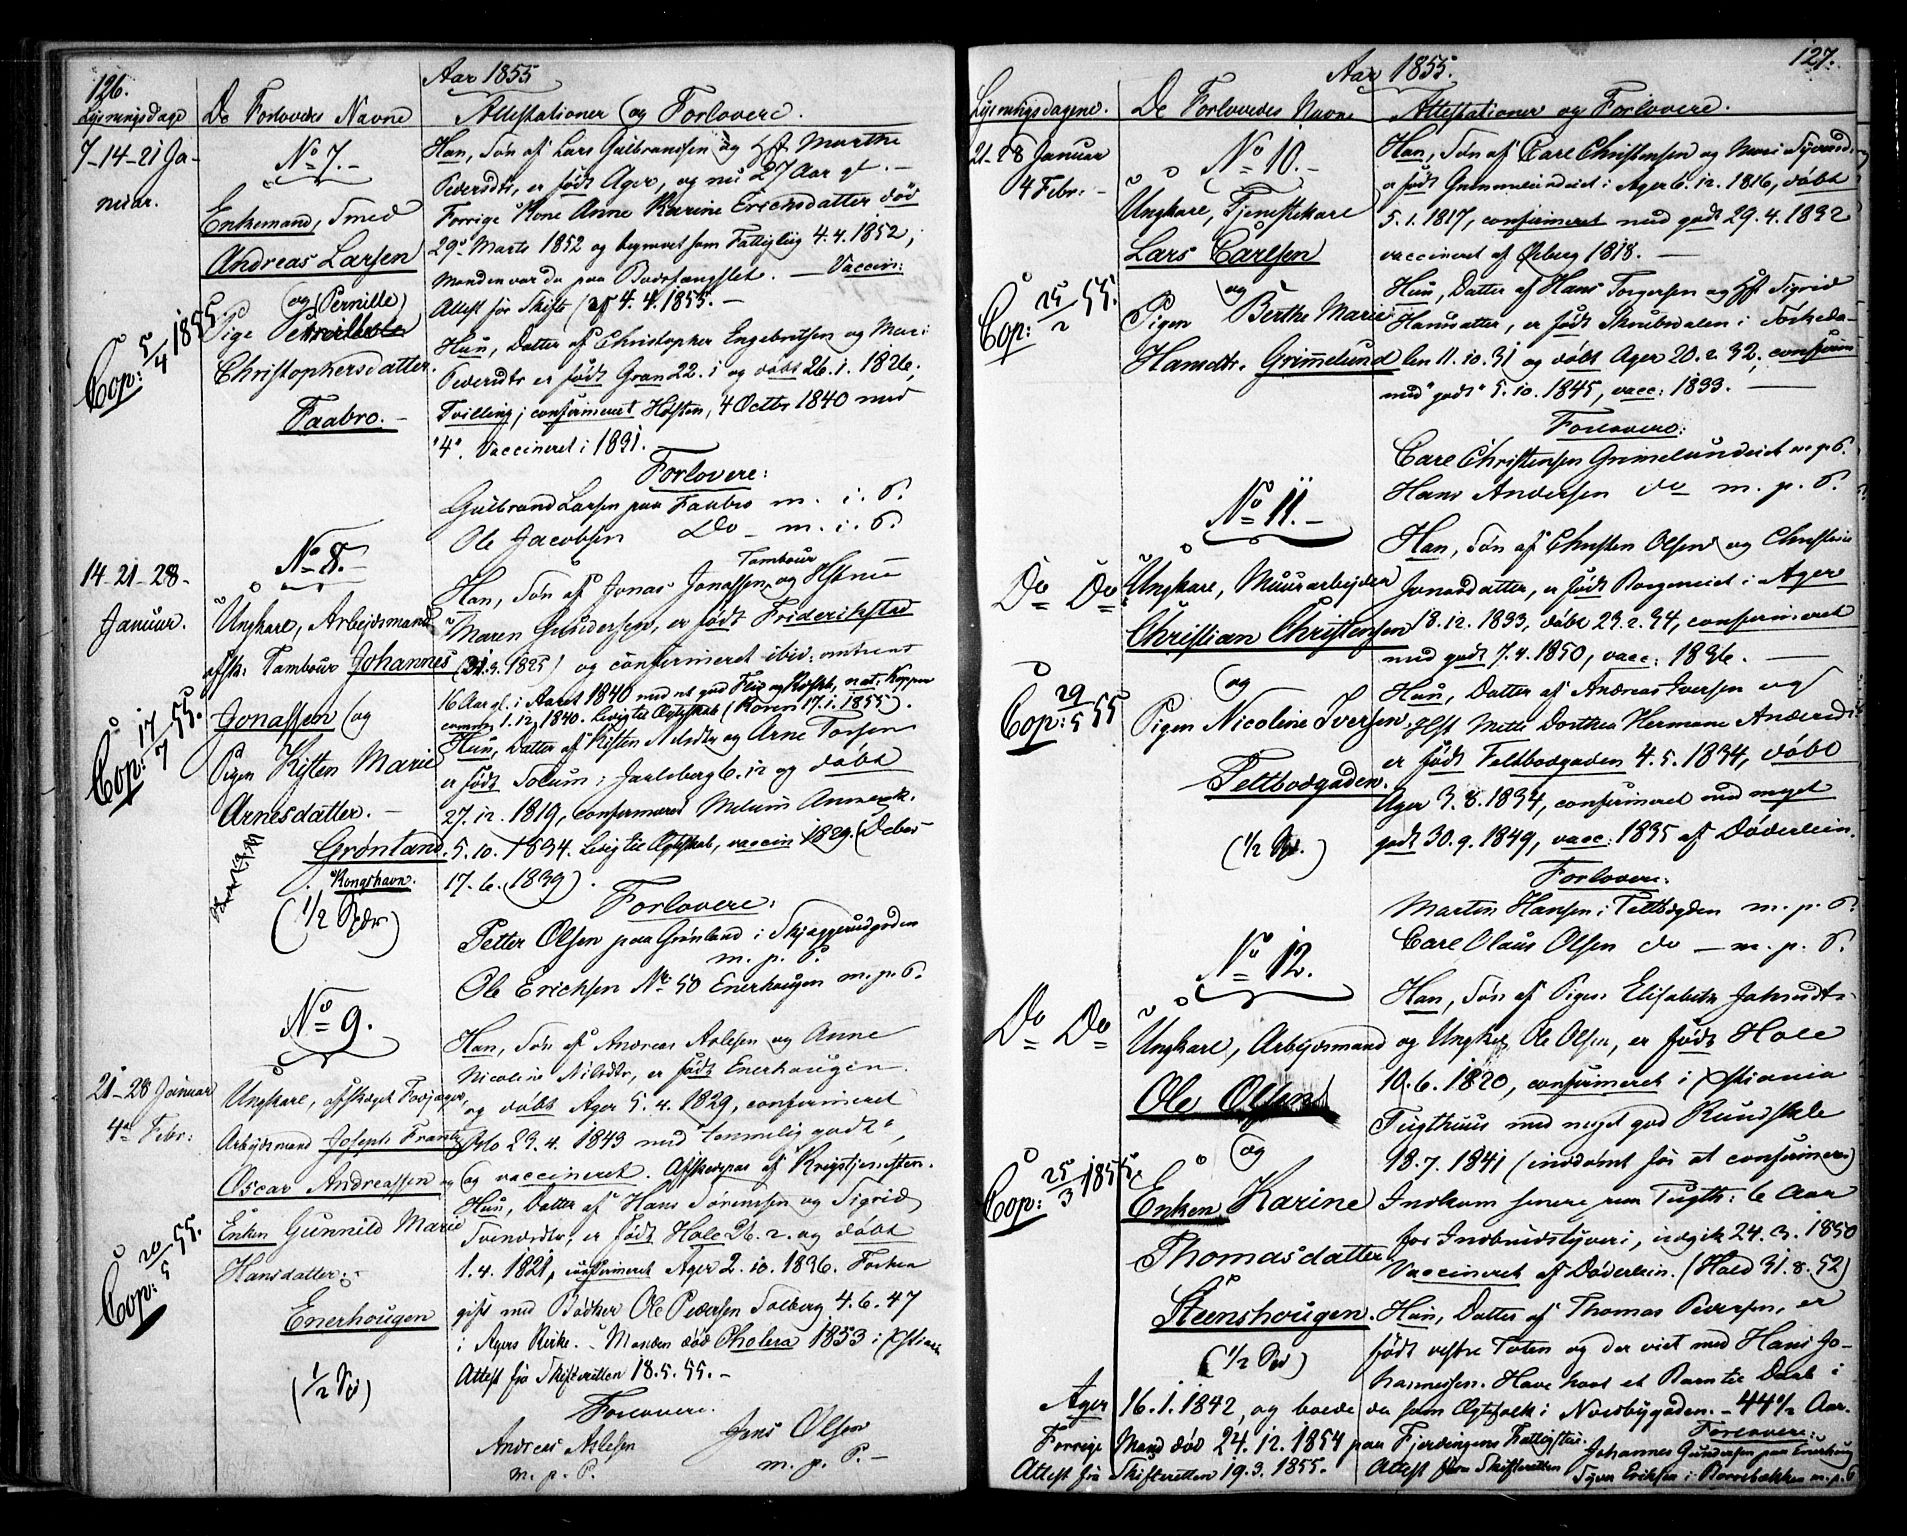 126.
Aar 1855
Lysningsdage
De Forlovedes Navne
Attestationer og Forlovere.
7-14-21 Ja-
nuar.
No 7.-
Enkemand, Smed
Andreas Larsen
og (Pernille)
Pige
Christophersdatter.
Faabro.-
Cop: 5/4 1855.
Han, Søn af Lars Gulbrandsen og Hst Marthe
Pedersdtr, er født Ager, og nu 27 Aar gl.-
Forrige Kone Anne Karine Erichsdatter død
29 Marts 1852 og begravet som Fattiglig 4.4.1852,
Manden var da paa Bodsfængslet. - Vaccin:
Attest før Skifte af 4.4.1855.-
Hun, Datter af Christopher Engebretsen og Mari
Pedersdtr er født Gran 22.1 og døbt 26.1.1826,
Tvilling; confirmeret Holsten, 4 Octbr 1840 med
"4". Vaccineret i 1831.
Forlovere:
Gulbrand Larsen paa Faabro m. i. P.
Ole Jacobsen Do - m. i. P.
14-21-28-
Januar.
No 8.-
Ungkare, Arbejdsmand
afsk. Tambour Johannes
Jonassen og
Pigen Kisten Marie
Arnesdatter.-
Grønland.
Kongshavn.
(1/2 Spdr)
Cop: 17/7 55.
Tambour
Han, Søn af Jonas Jonassen og Hstru
Maren Gundersen, er født Friderikstad
(31.3.1825) og confirmeret ibid: omtrent
16 Aar gl. i Aaret 1840 med et god Flid og Kdskb, nat: Kopper
comm. 1.12.1840. Ledig til Ægteskab (Koren 17.1.1855).
Hun, Datter af Kisten Nilsdtr og Arne Torsen
er født Solum i Jarlsberg 6.12 og døbt
27.12.1819, confirmered Melum Annex.
5.10.1834. Ledig til Ægteskab, vaccin 1829. (Debes
17.6.1839).
Forlovere:
Petter Olsen paa Grønland i Skjæggerudgaden
m. p. P.
Ole Erichsen No 50 Enerhougen m. p. P.
No 9.
21-28 Januar
4de Febr:
Ungkare, afskeget Forjager,
Arbejdsmand Joseph Frantz
Oscar Andreassen og
Enken Gunnild Marie
Hansdatter.-
Enerhougen
(1/2 Spd)
Cop: 20/5 55.
Han, Søn af Andreas Aslesen og Anne
Nicoline Nilsdtr, er født Enerhougen
og døbt Ager 5.4.1829, confirmeret
Oslo 23.4.1843 med temmelig godt,
og vaccineret. Afskedspas af Krigstjenesten.
Hun, Datter af Hans Sørensen og Sigrid
Svendsdtr, er født Hole 26.2. og døbt
1.4.1821, confirmeret Ager 2.10.1836. Forhen
gift med Bødker Ole Pedersen Solberg 4.6.47
i Agers Kirke. - Manden død Cholera 1853 i Xstiania
Attest fra Skifteretten 18.5.55.-
Forlovere.
Andreas Aslesen
m. p. P.
Jens Olsen
m. p. P.-
127.
Aar 1855.
Lysningsdagene.
De Forlovedes Navne
Attestationer og Forlovere.
21-28 Januar
4 Febr:-
No 10.-
Ungkare, Tjenestekare
Lars Carlsen
og
Pigen Berthe Marie
Hansdtr. Grimelund
Cop: 25/2 55.
Han, Søn af Carl Christensen og Mari Syversd:
er født Grimmelundeiet i Ager 6.12.1816, døbt
5.1.1817, confirmeret med godt 29.4.1832
vaccineret af Ørberg 1818.-
Hun, Datter af Hans Torgersen og Hst Sigrid
Hansdatter, er født Skrubsdalen i Sørkeda-
len 11.10.31 og døbt Ager 20.2.32, confirm
med "godt" 5.10.1845, vacc: 1833.-
Forlovere:
Carl Christensen Grimelundeiet m. p. P.
Hans Andersen do m. p. P.
No 11.-
Do Do
Ungkare, Muurarbejder
Christian Christensen
og
Pigen Nicoline Iversen
Teltbodgaden.
(1/2 Sp.)
Cop: 29/5 55
Han, Søn af Christen Olsen og Christine
Jonasdatter, er født Borgeneiet i Ager
18.12.1833, døbt 23.2.34, confirmeret
med godt 7.4.1850, vacc: 1836.-
Hun, Datter af Andreas Iversen og
Hst Mette Dorthea Hermane Andersd:
er født Teltbodgaden 4.5.1834, døbt
Ager 3.8.1834, confirmeret med meget
godt 30.9.1849, vacc: 1835 af Døderlein.
Forlovere:
Martin Hansen i Teltbodgden m. p. P.
Carl Olaus Olsen do - m. p. P.
No 12.
Do Do
Ungkare, Arbejdsmand
Ole Olsen
og
Enken Karine
Thomasdatter
Steenshougen.
(1/2 Sp)
Cop: 25/3 1855.
Han, Søn af Pigen Elisabeth Johnsdtr
og Ungkrl Ole Olsen, er født Hole
10.6.1820, confirmeret i Xstiania
Tugthuus med meget god Kundskab
18.7.1841 (inddømt for at confirmeres)
Indkom senere paa Tugth: 6 Aar
for Indbrudstyveri, udgik 24.3.1850
Vaccineret af Døderlein. (Hold 31.8.52)
Hun, Datter af Thomas Pedersen, er
født vestre Toten og der viet med Hans Jo-
hannessen. Have havt et Barn til Daab i
Ager 16.1.1842, og boede da som Ægtefolk i Nordbygaden. - 44 1/2 Aar.
Forrige Mand død 24.12.1854 paa Fjerdingens Fattigstue.
Attest fra Skifteretten 19.3.1855. Attest fra Skifteretten
Forlovere:
Johannes Gundersen paa Enerhoug
Syver Eriksen i Norrebakken m. p. P.